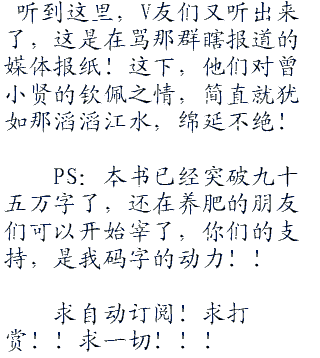 听到这里，V友们又听出来
了，这是在骂那群瞎报道的
媒体报纸！这下，他们对曾
小贤的钦佩之情，简直就犹
如那滔滔江水，绵延不绝！
PS：本书已经突破九十
五万字了，还在养肥的朋友
们可以开始宰了，你们的支
持，是我码字的动力！！
求自动订阅！求打
赏！！求一切！！！